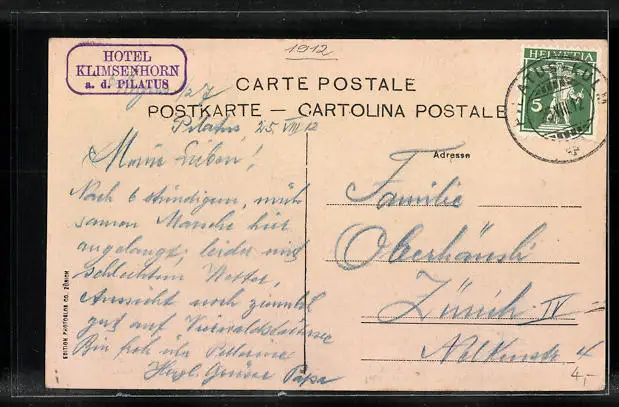 1912
HOTEL
KLIMSENHORN
a. d. PILATUS
HELVETIA
5
CARTE POSTALE
POSTKARTE — CARTOLINA POSTALE
Pilatus, 25. VIII 12
Adresse
Meine Lieben!
Nach 6 stündigem, müh-
samen Marsche hier
angelangt, leider mit
schlechtem Wetter,
Aussicht noch ziemlich
gut auf Vierwaldstättersee
Bin froh über Pellerine
Herzl. Grüsse Papa
Familie
Oberhänsli
Zürich IV
4
4,-
EDITION PHOTOGLOB CO. ZÜRICH